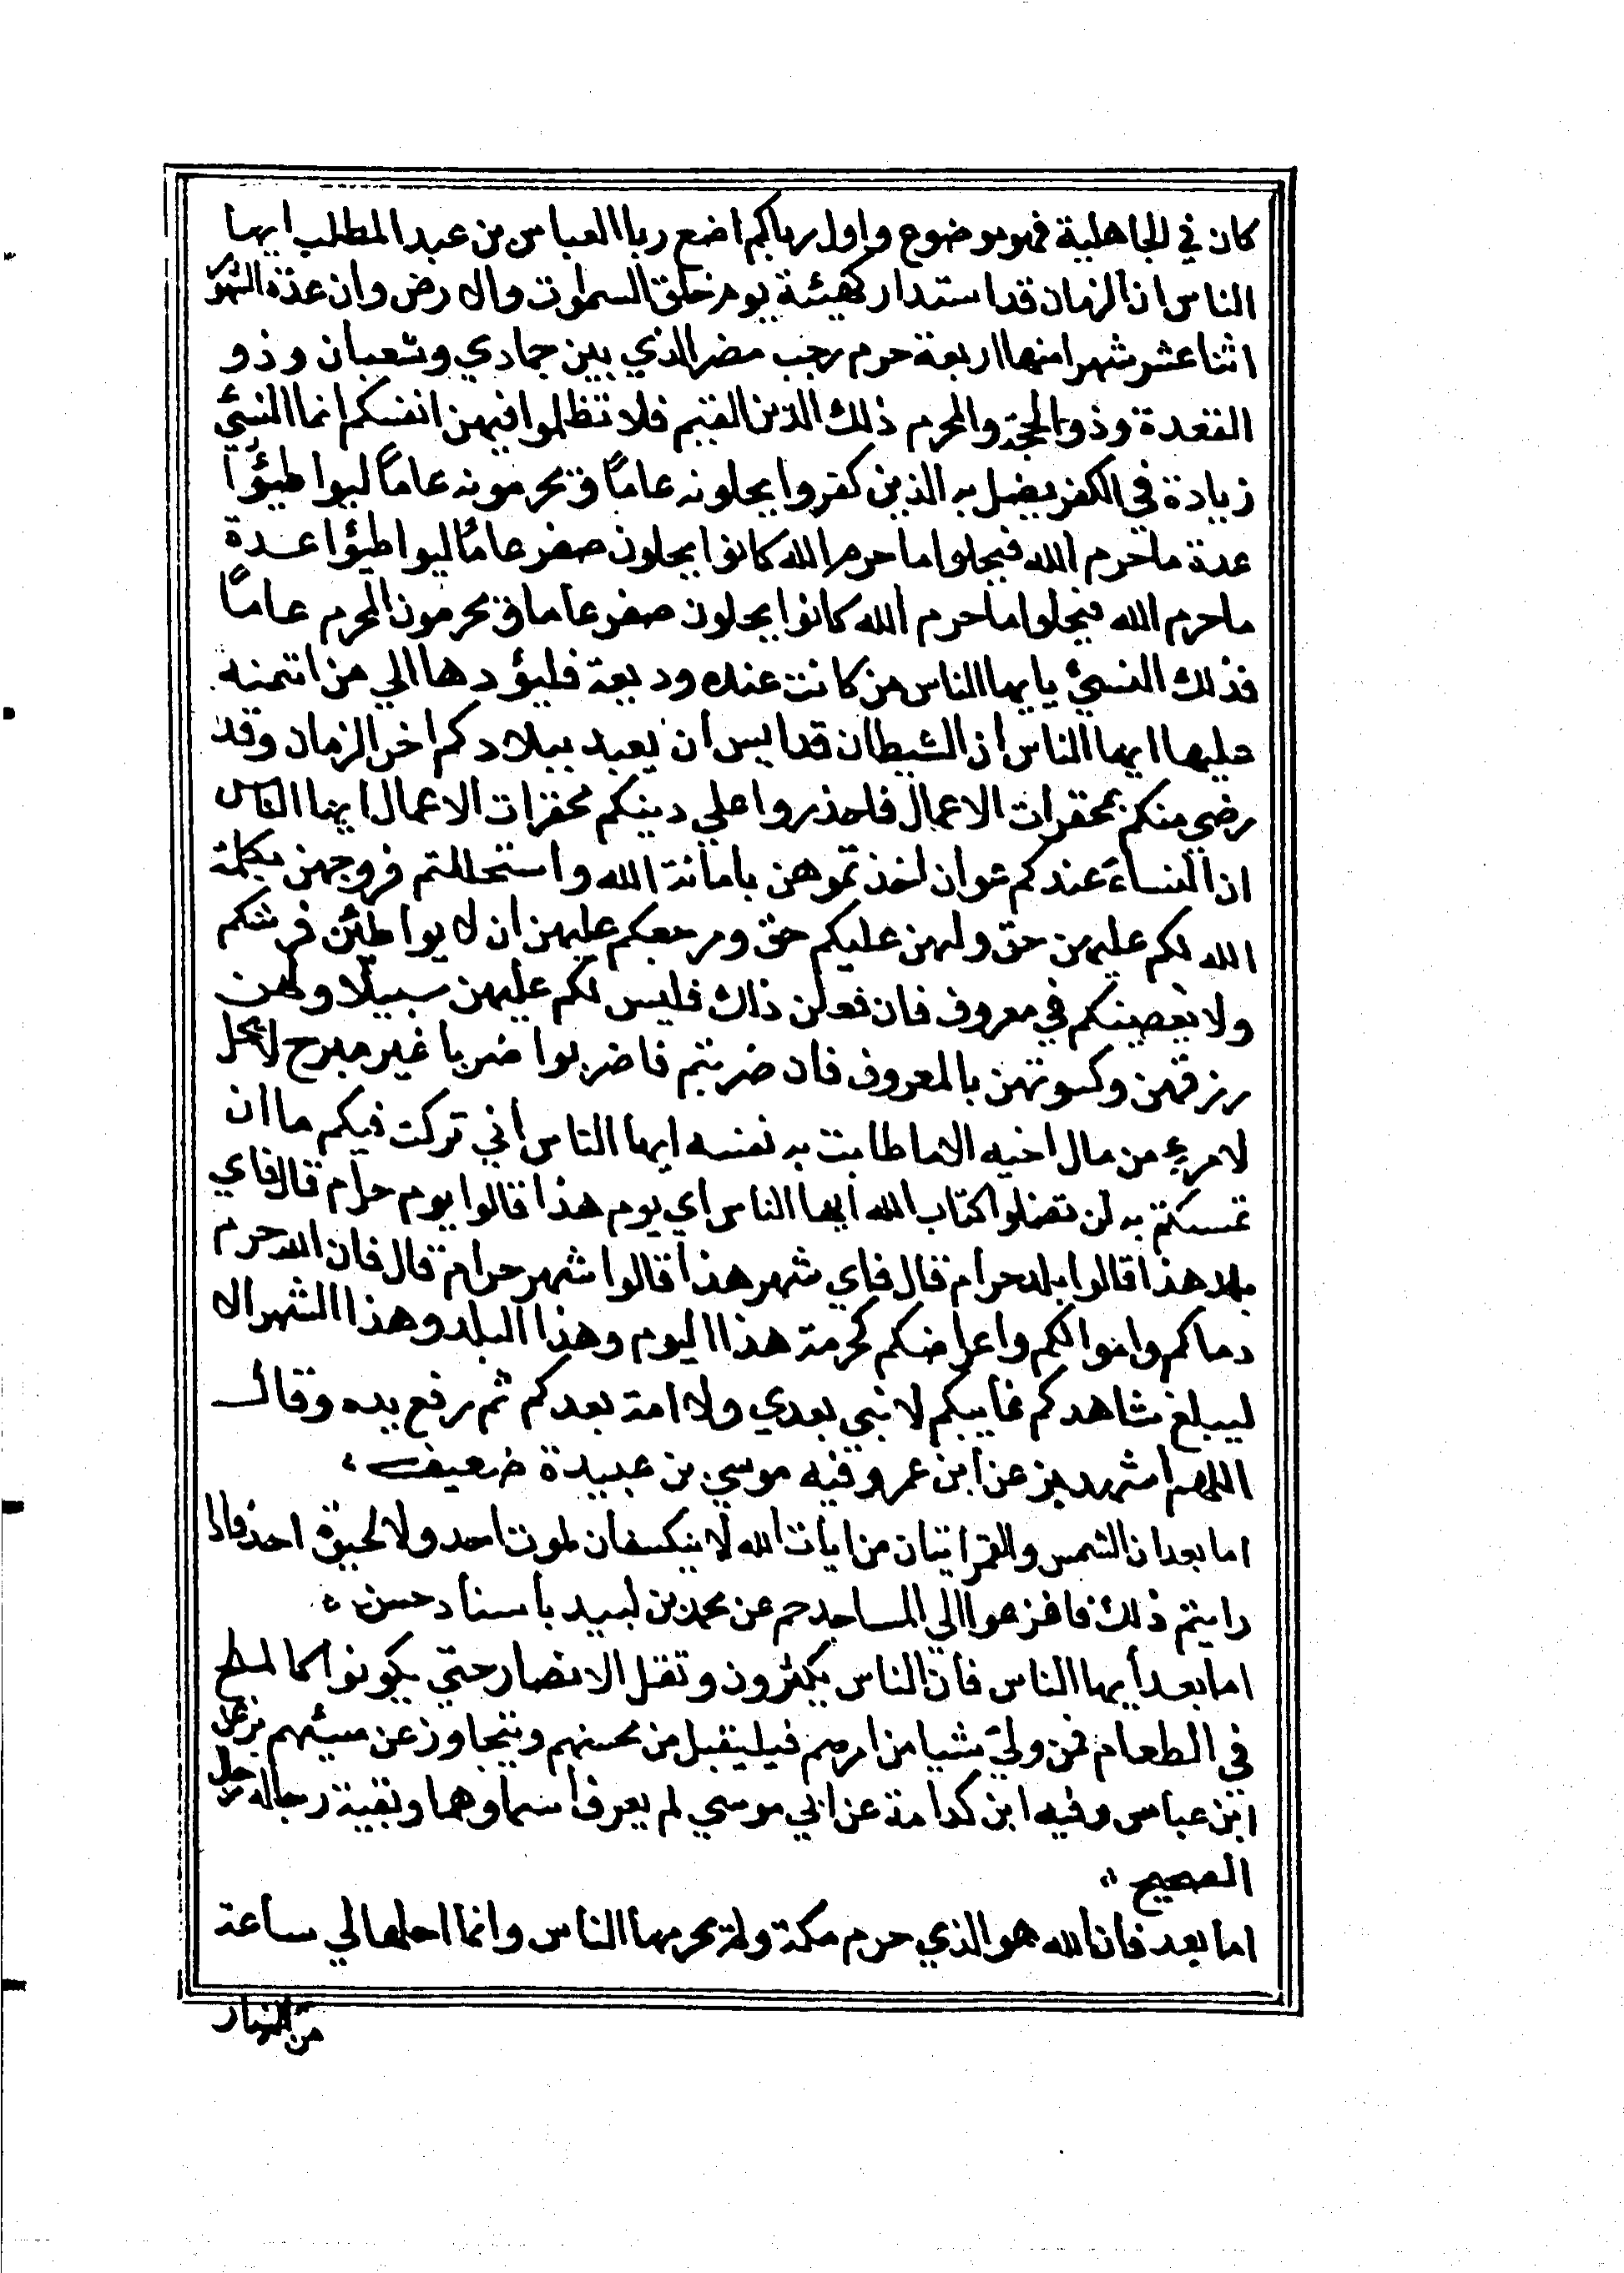 كان في الجاهلية فهو موضوع واول رباكم اضع ربا العباس بن عبد المطلب ايها
الناس ان الزمان قد استدار كهيئة يوم خلق السموات والارض وان عدة الشهور
اثنا عشر شهرا منها اربعة حرم رجب مضر الذي بين جمادي وشعبان وذو
القعدة وذو الحجة والمحرم ذلك الدين القيم فلا تظلموا فيهن انفسكم انما النسئ
زيادة في الكفر يضل به الذين كفروا يحلونه عامًا ويحرمونه عامًا ليواطيؤا
عدة ما حرم الله فيحلوا ما حرم الله كانوا يحلون صفر عامًا ليواطيؤا عدة
ما حرم الله فيحلوا ما حرم الله كانوا يحلون صفر عاما ويحرمون المحرم عامًا
فذلك النسئ يا يها الناس من كانت عنده وديعة فليؤدها الي من ائتمنه
عليها ايها الناس ان الشيطان قد ايس ان يعبد ببلادكم اخر الزمان وقد
رضي منكم بمحقرات الاعمال فاحذروا علي دينكم محقرات الاعمال ايها الناس
ان النساء عندكم عوان اخذتموهن بامانة الله واستحللتم فروجهن بكلمة
الله لكم عليهن حق ولهن عليكم حق ومن حقكم عليهن ان لا يواطئن فرشكم
ولا يعصينكم في معروف فان فعلن ذلك فليس لكم عليهن سبيلا ولهن
رزقهن وكسوتهن بالمعروف فان ضربتم فاضربوا ضربا غير مبرح لا يحل
لامرئ من مال اخيه الا ما طابت به نفسه ايها الناس اني تركت فيكم ما ان
تمسكتم به لن تضلوا كتاب الله ايها الناس اي يوم هذا قالوا يوم حرام قال فاي
بلد هذا قالوا بلد حرام قال فاي شهر هذا قالوا شهر حرام قال فان الله حرم
دماكم واموالكم واعراضكم كحرمة هذا اليوم وهذا البلد وهذا الشهر الا
ليبلغ شاهدكم غايبكم لا نبي بعدي ولا امة بعدكم ثم رفع يده وقال
اللهم اشهد بز عن ابن عمر وفيه موسي بن عبيدة ضعيف
اما بعد ان الشمس والقمر ايتان من ايات الله لا ينكسفان لموت احد ولا لحيوة احد فاذا
رايتم ذلك فافزعوا الي المساجد حم عن محمد بن لبيد باسناد حسن
اما بعد أيها الناس فان الناس يكثرون وتقل الانصار حتي يكونوا كالملح
في الطعام فمن ولي شيا من امرهم فيليتقبل من محسنهم ويتجاوز عن مسيئهم بز عن
ابن عباس وفيه ابن كدامة عن ابي موسي لم يعرف اسماوهما وبقية رجاله رجال
الصحيح
اما بعد فان الله هو الذي حرم مكة ولم يحرمها الناس وانما احلها لي ساعة
من النهار